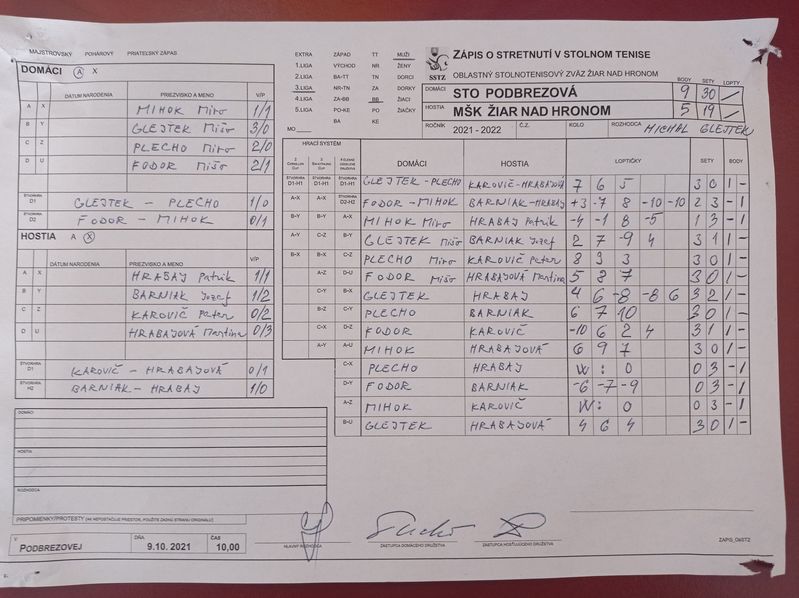 MAJSTROVSKÝ POHÁROVÝ PRIATEĽSKÝ ZÁPAS
DOMÁCI A X
DÁTUM NARODENIA PRIEZVISKO A MENO V/P
A X MIHOK Miro 1/1
B Y GLEJTEK Mišo 3/0
C Z PLECHO Miro 2/0
D U FODOR Mišo 2/1
ŠTVORHRA D1 GLEJTEK - PLECHO 1/0
ŠTVORHRA D2 FODOR - MIHOK 0/1
HOSTIA A X
DÁTUM NARODENIA PRIEZVISKO A MENO V/P
A X HRABAJ Patrik 1/1
B Y BARNIAK Jozef 1/2
C Z KAROVIČ Peter 0/2
D U HRABAJOVÁ Martina 0/3
ŠTVORHRA D1 KAROVIČ - HRABAJOVÁ 0/1
ŠTVORHRA H2 BARNIAK - HRABAJ 1/0
DOMÁCI
HOSTIA
ROZHODCA
PRIPOMIENKY/PROTESTY (AK NEPOSTAČUJE PRIESTOR, POUŽITE ZADNÚ STRANU ORIGINÁLU)
V PODBREZOVEJ DŇA 9.10.2021 ČAS 10,00
EXTRA ZÁPAD TT MUŽI
1.LIGA VÝCHOD NR ŽENY
2.LIGA BA-TT TN DORCI
3.LIGA NR-TN ZA DORKY
4.LIGA ZA-BB BB ŽIACI
5.LIGA PO-KE PO ŽIAČKY
BA KE
MO
SSTZ
ZÁPIS O STRETNUTÍ V STOLNOM TENISE
OBLASTNÝ STOLNOTENISOVÝ ZVÄZ ŽIAR NAD HRONOM
BODY SETY LOPTY
DOMÁCI STO PODBREZOVÁ 9 30 /
HOSTIA MŠK ŽIAR NAD HRONOM 5 19 /
ROČNÍK 2021 - 2022 Č.Z. KOLO ROZHODCA MICHAL GLEJTEK
HRACÍ SYSTÉM
DOMÁCI HOSTIA LOPTIČKY SETY BODY
ŠTVORHRA D1-H1 ŠTVORHRA D1-H1 ŠTVORHRA D1-H1 GLEJTEK - PLECHO KAROVIČ-HRABAJOVÁ 7 6 5 3 0 1 -
A-X A-X ŠTVORHRA D2-H2 FODOR - MIHOK BARNIAK-HRABAJ +3 -7 8 -10 -10 2 3 - 1
B-Y B-Y A-X MIHOK Miro HRABAJ Patrik -4 -1 8 -5 1 3 - 1
A-Y C-Z B-Y GLEJTEK Mišo BARNIAK Jozef 2 7 -9 4 3 1 1 -
B-X B-X C-Z PLECHO Miro KAROVIČ Peter 8 3 3 3 0 1 -
A-Z D-U FODOR Mišo HRABAJOVÁ Martina 5 8 7 3 0 1 -
C-Y B-X GLEJTEK HRABAJ 4 6 -8 -8 6 3 2 1 -
B-Z C-Y PLECHO BARNIAK 6 7 10 3 0 1 -
C-X D-Z FODOR KAROVIČ -10 6 2 4 3 1 1 -
A-Y A-U MIHOK HRABAJOVÁ 6 9 7 3 0 1 -
C-X PLECHO HRABAJ W : 0 0 3 - 1
D-Y FODOR BARNIAK -6 -7 -9 0 3 - 1
A-Z MIHOK KAROVIČ W : 0 0 3 - 1
B-U GLEJTEK HRABAJOVÁ 4 6 4 3 0 1 -
HLAVNÝ ROZHODCA
ZÁSTUPCA DOMÁCEHO DRUŽSTVA
ZÁSTUPCA HOSŤUJÚCEHO DRUŽSTVA
ZAPIS_OSSTZ